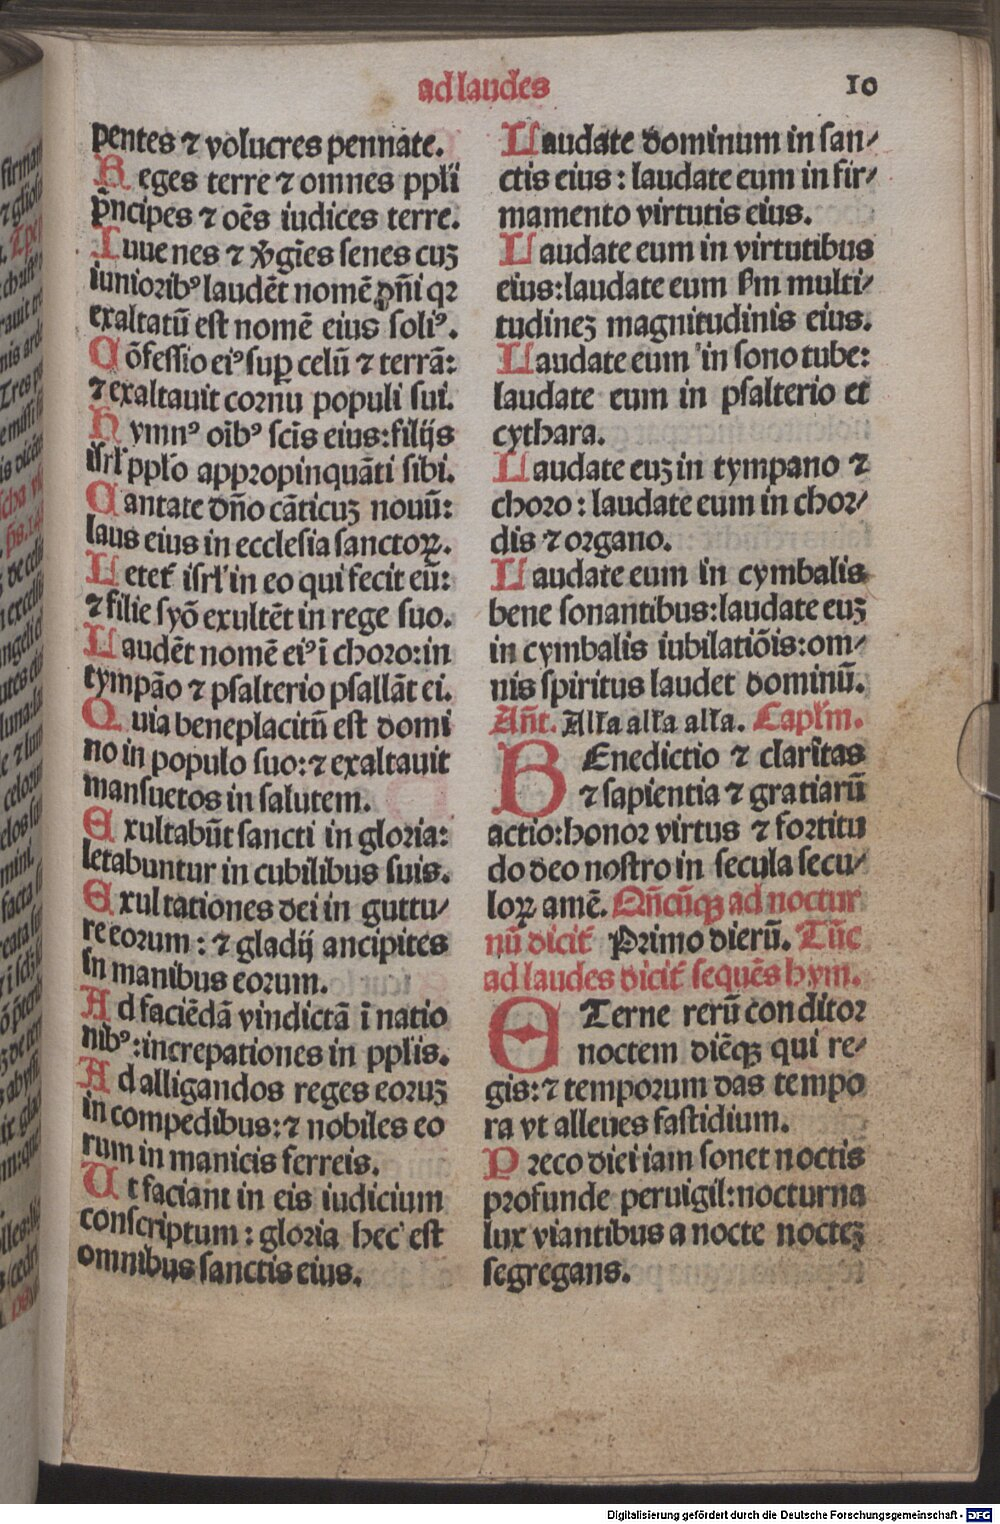 ad laudes
10
pentes ⁊ volucres pennate.
Reges terre ⁊ omnes ppłi
p̄ncipes ⁊ oēs iudices terre.
Iuuenes ⁊ v̓gīes senes cuꝫ
iuniorib⁹ laudēt nomē dn̄i qꝛ
exaltatū est nomē eius soli⁹.
Cōfessio ei⁹ suꝑ celū ⁊ terrā:
⁊ exaltauit cornu populi sui.
Hymn⁹ oīb⁹ scīs eius: filijs
isrł ppło appropinquāti sibi.
Cantate dn̄o cāticuꝫ nouū:
laus eius in ecclesia sanctoꝝ.
Letet᷑ isrł in eo qui fecit eū:
⁊ filie syō exultēt in rege suo.
Laudēt nomē ei⁹ ī choro: in
tympāo ⁊ psalterio psallāt ei.
Quia beneplacitū est domi
no in populo suo: ⁊ exaltauit
mansuetos in salutem.
Exultabūt sancti in gloria:
letabuntur in cubilibus suis.
Exultationes dei in guttu/
re eorum: ⁊ gladij ancipites
in manibus eorum.
Ad faciēdā vindictā ī natio
nib⁹: increpationes in ppłis.
Ad alligandos reges eoruꝫ
in compedibus: ⁊ nobiles eo
rum in manicis ferreis.
Ut faciant in eis iudicium
conscriptum: gloria hec est
omnibus sanctis eius.
Laudate dominum in san/
ctis eius: laudate eum in fir/
mamento virtutis eius.
Laudate eum in virtutibus
eius: laudate eum sm̄ multi/
tudineꝫ magnitudinis eius.
Laudate eum in sono tube:
laudate eum in psalterio et
cythara.
Laudate euꝫ in tympano ⁊
choro: laudate eum in chor/
dis ⁊ organo.
Laudate eum in cymbalis
bene sonantibus: laudate euꝫ
in cymbalis iubilatiōis: om/
nis spiritus laudet dominū.
Añt. Alła alła alła. Caplm̄.
BEnedictio ⁊ claritas
⁊ sapientia ⁊ gratiarū
actio: honor virtus ⁊ fortitu
do deo nostro in secula secu/
loꝝ amē. Qñcūqꝫ ad noctur
nū dicit᷑ Primo dierū. Tūc
ad laudes dicit᷑ sequēs hym.
ETerne rerū conditor
noctem diēqꝫ qui re/
gis: ⁊ temporum das tempo
ra vt alleues fastidium.
Preco diei iam sonet noctis
profunde peruigil: nocturna
lux viantibus a nocte nocteꝫ
segregans.
Digitalisierung gefördert durch die Deutsche Forschungsgemeinschaft - DFG